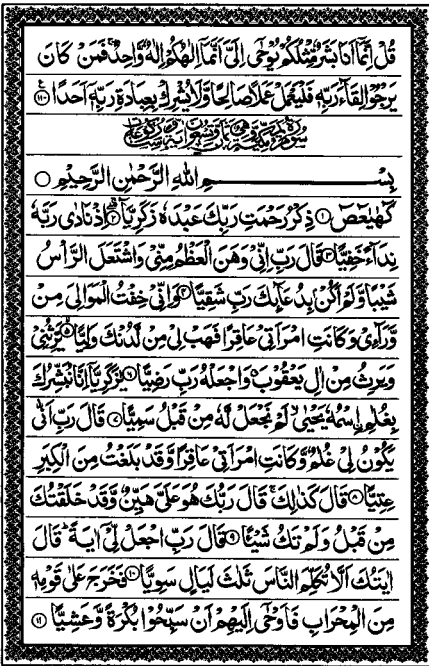 قُلْ اِنَّمَاۤ اَنَا بَشَرٌ مِّثْلُكُمْ یُوْحٰۤی اِلَیَّ اَنَّمَاۤ اِلٰهُكُمْ اِلٰهٌ وَّاحِدٌ ۚ فَمَنْ كَانَ
یَرْجُوْا لِقَآءَ رَبِّهٖ فَلْیَعْمَلْ عَمَلًا صَالِحًا وَّلَا یُشْرِكْ بِعِبَادَةِ رَبِّهٖۤ اَحَدًا ﴿۱۱۰﴾
بِسْمِ اللهِ الرَّحْمٰنِ الرَّحِیْمِ
كٓهٰیٰعٓصٓ ﴿۱﴾ ذِكْرُ رَحْمَتِ رَبِّكَ عَبْدَهٗ زَكَرِیَّا ﴿۲﴾ اِذْ نَادٰی رَبَّهٗ
نِدَآءً خَفِیًّا ﴿۳﴾ قَالَ رَبِّ اِنِّیْ وَهَنَ الْعَظْمُ مِنِّیْ وَاشْتَعَلَ الرَّاْسُ
شَیْبًا وَّلَمْ اَكُنْۢ بِدُعَآئِكَ رَبِّ شَقِیًّا ﴿۴﴾ وَاِنِّیْ خِفْتُ الْمَوَالِیَ مِنْ
وَّرَآءِیْ وَكَانَتِ امْرَاَتِیْ عَاقِرًا فَهَبْ لِیْ مِنْ لَّدُنْكَ وَلِیًّا ﴿۵﴾ یَّرِثُنِیْ
وَیَرِثُ مِنْ اٰلِ یَعْقُوْبَ وَاجْعَلْهُ رَبِّ رَضِیًّا ﴿۶﴾ یٰزَكَرِیَّاۤ اِنَّا نُبَشِّرُكَ
بِغُلٰمِ ِ۟اسْمُهٗ یَحْیٰی لَمْ نَجْعَلْ لَّهٗ مِنْ قَبْلُ سَمِیًّا ﴿۷﴾ قَالَ رَبِّ اَنّٰی
یَكُوْنُ لِیْ غُلٰمٌ وَّكَانَتِ امْرَاَتِیْ عَاقِرًا وَّقَدْ بَلَغْتُ مِنَ الْكِبَرِ
عِتِیًّا ﴿۸﴾ قَالَ كَذٰلِكَ ۚ قَالَ رَبُّكَ هُوَ عَلَیَّ هَیِّنٌ وَّقَدْ خَلَقْتُكَ
مِنْ قَبْلُ وَلَمْ تَكُ شَیْئًا ﴿۹﴾ قَالَ رَبِّ اجْعَلْ لِّیْۤ اٰیَةً ؕ قَالَ
اٰیَتُكَ اَلَّا تُكَلِّمَ النَّاسَ ثَلٰثَ لَیَالٍ سَوِیًّا ﴿۱۰﴾ فَخَرَجَ عَلٰی قَوْمِهٖ
مِنَ الْمِحْرَابِ فَاَوْحٰۤی اِلَیْهِمْ اَنْ سَبِّحُوْا بُكْرَةً وَّعَشِیًّا ﴿۱۱﴾